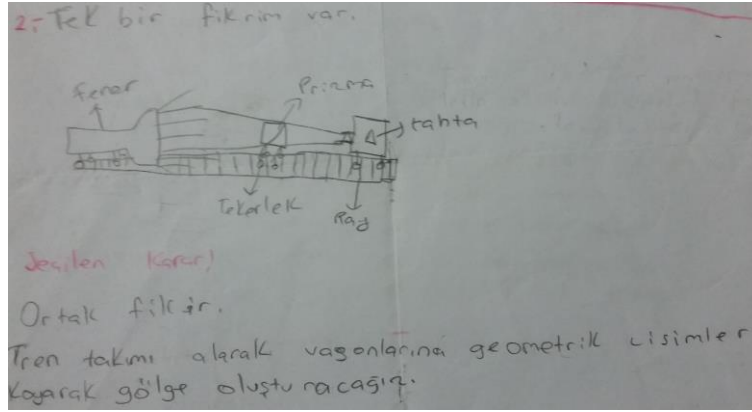 2:- Tek bir fikrim var.
fener
Prizma
tahta
Tekerlek
Ray
Seçilen Karar)
Ortak fikir.
Tren takımı alarak vagonlarına geometrik cisimler
Koyarak gölge oluşturacağız.